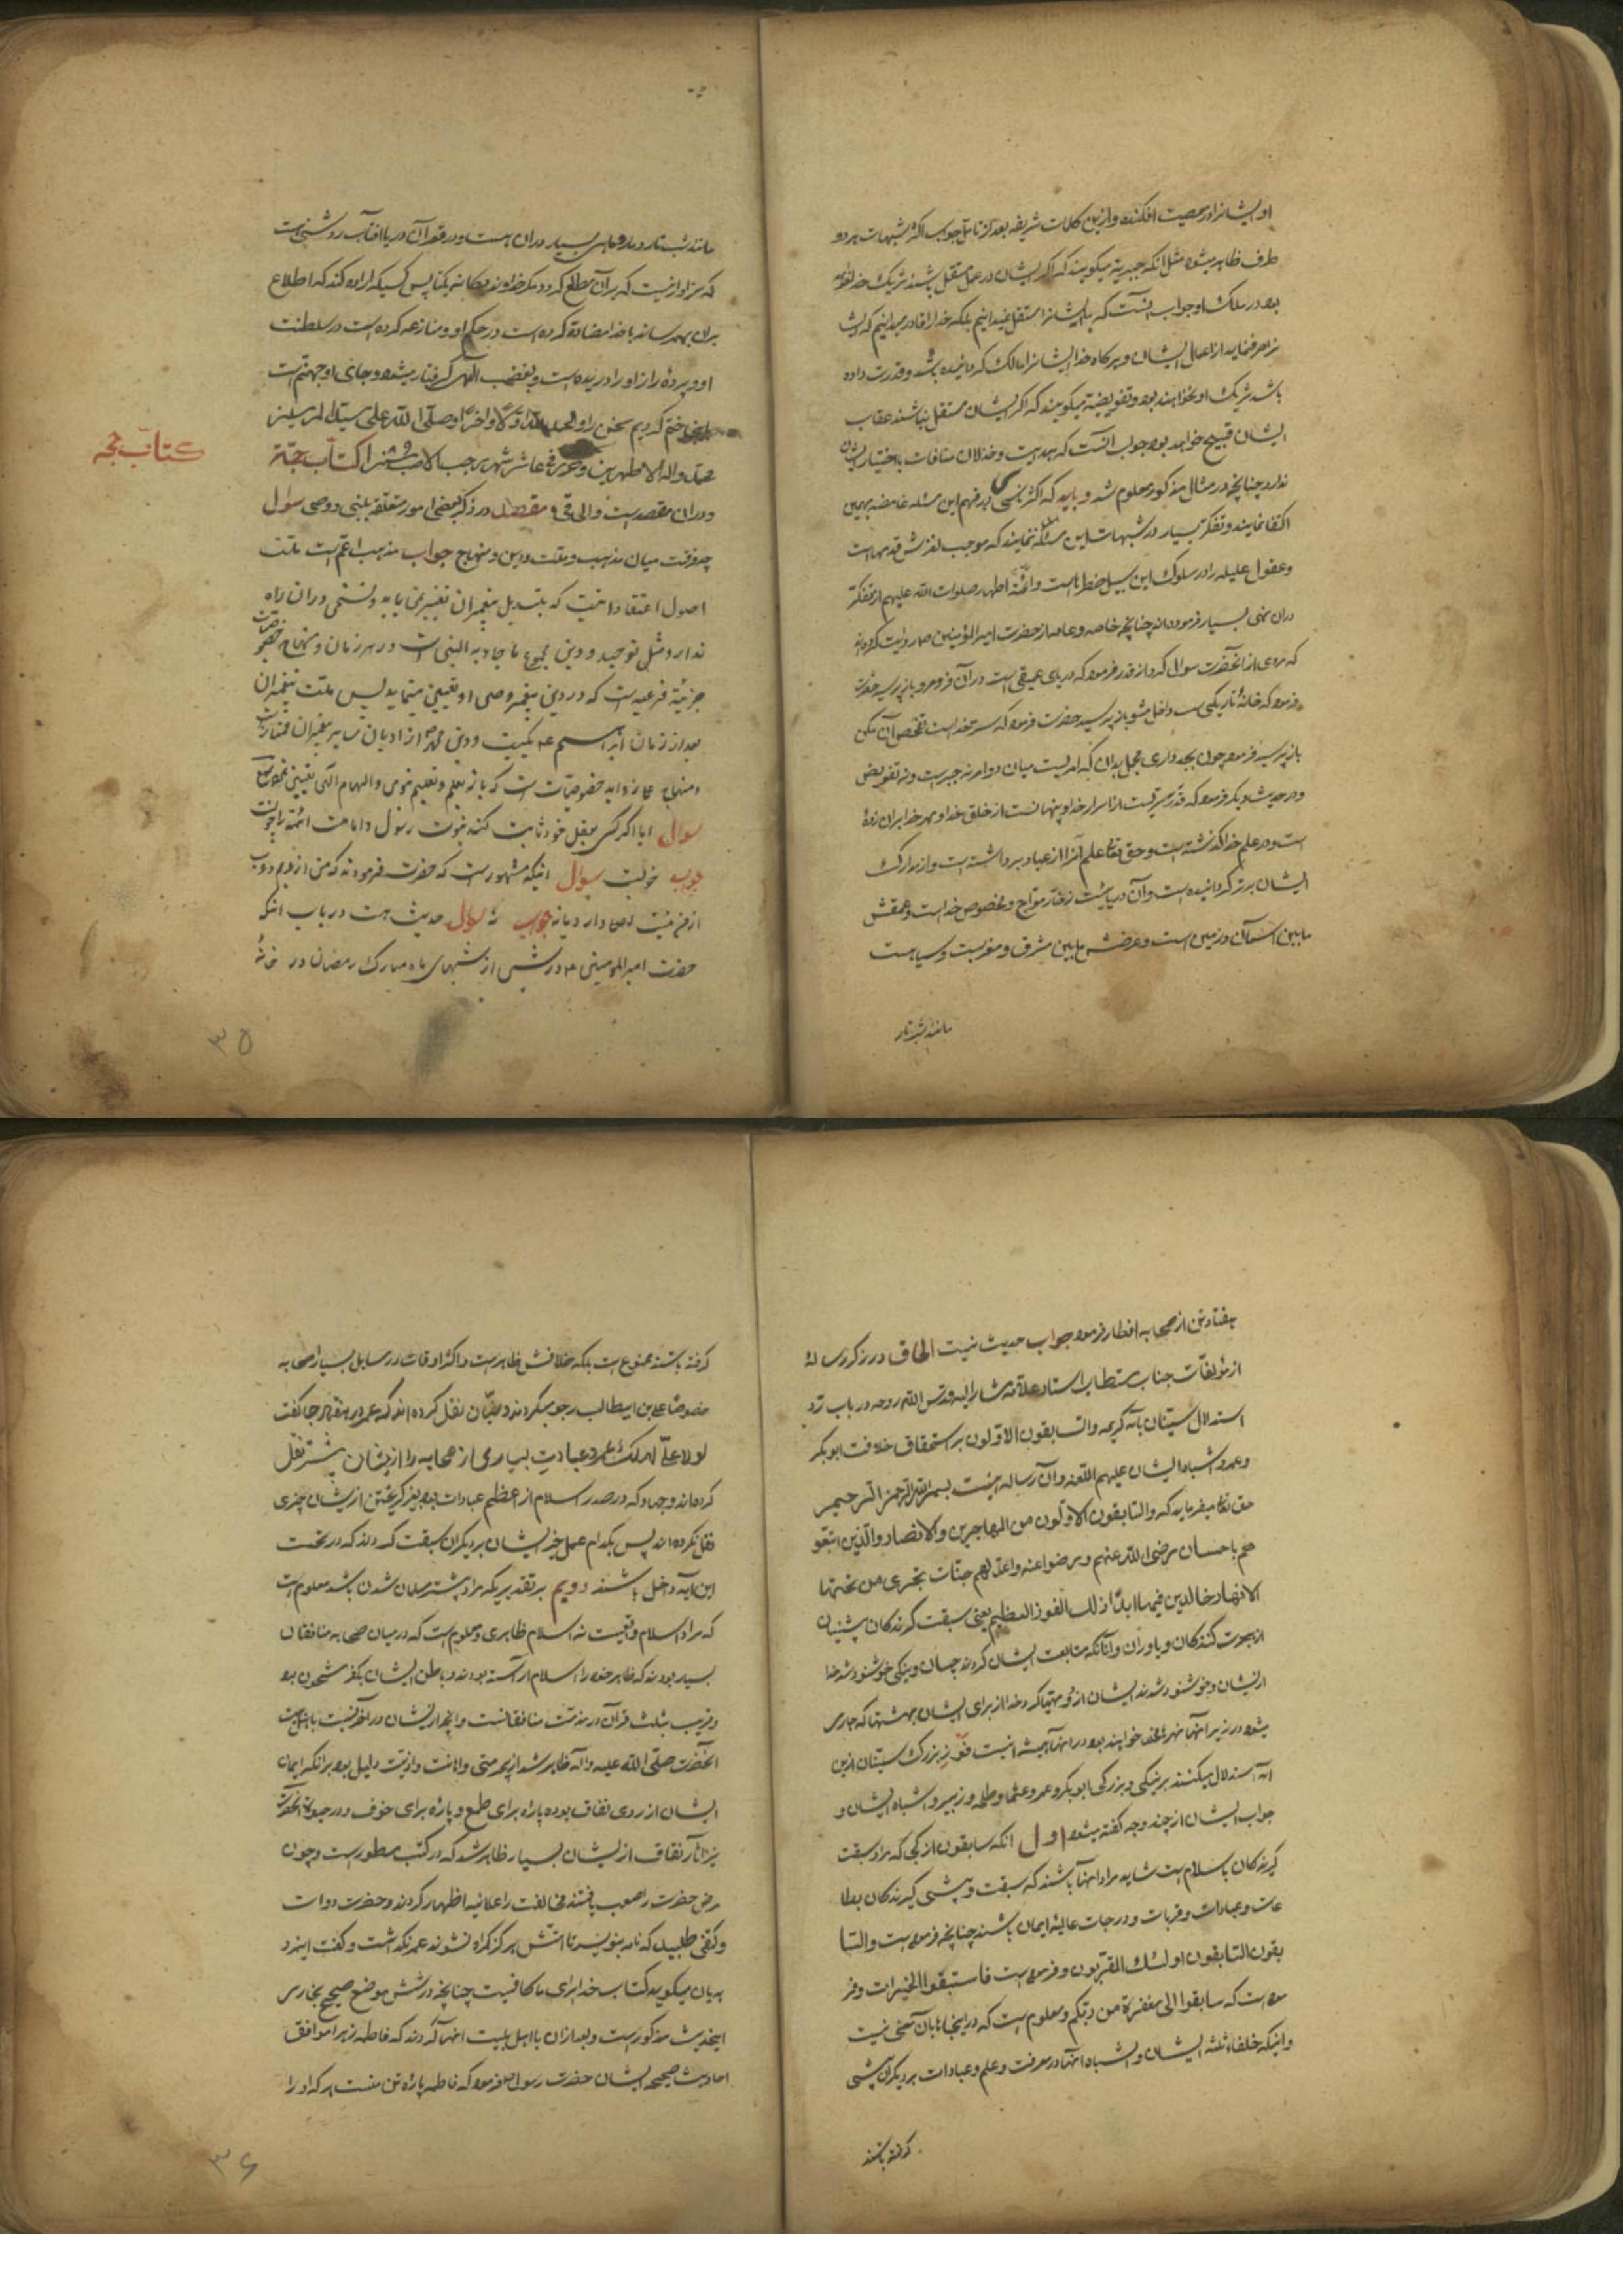 او ایشانرا در معصیت افکنده و ازین کلمات شریفه بعد از تامل جواب اکثر شبهات هر دو
طرف ظاهر میشود مثل انکه جبریه میکویند که اکر ایشان در عمل مستقل باشند شریک خدا
بود در ملک او جواب انست که ما ایشانرا مستقل نمیدانیم بلکه خدا را قادر میدانیم که
از اعمال ایشان و هرکاه خدا ایشانرا مالک کردانیده باشد و قدرت داده
باشد شریک او نخواهند بود و تفویضیه میکویند که اکر ایشان مستقل نباشند عقاب
ایشان قبیح خواهد بود جواب انست که هدایت و خذلان منافات با اختیار ایشان
ندارد چنانچه در مثال مذکور معلوم شد و باید که اکثر ناس در فهم این مسئله غامضه بهمین
اکتفا نمایند و تفکر بسیار در شبهات این مسئله ننمایند که موجب لغزش قدمهاست
و عقول علیله را در سلوک این سبیل خطرهاست و ائمه اطهار صلوات الله علیهم از تفکر
دران نهی بسیار فرموده‌اند چنانچه خاصه و عامه از حضرت امیرالمؤمنین ص روایت کرده‌اند
که مردی از انحضرت سوال کرد از قدر فرمود که دریای عمیقی است دران فرو مرو باز پرسید حضرت
فرمود که خانه تاریکی است داخل مشو باز پرسید حضرت فرمود که سر خداست تفحص آن مکن
باز پرسید فرمود چون بجد داری مجمل بدان که امریست میان دو امر نه جبرست و نه تفویض
و در حدیث دیکر فرمود که قدر سریست از اسرار خدا و پنهانست از خلق خدا و مهر خدا بران زده
است و در علم خدا کذشته است و حق تعالی علم آنرا از عباد برداشته است و از مدارک
ایشان برتر کردانیده است و آن دریائیست زخار مواج و مخصوص خداست و عمقش
مابین اسمان و زمین است و عرضش مابین مشرق و مغربست و سیاهست
مانند شب تار
مانند شب تار و مار و ماهی بسیار دران هست و در قعر آن دریا افتاب روشنی است
که سزاوار نیست که بر آن مطلع کردد مکر خداوند یکانه یکتا پس کسیکه اراده کند که اطلاع
بران بهم رساند با خدا مضاده کرده است در حکم او و منازعه کرده است در سلطنت
او و پرده راز او را دریده است و بغضب الهی کرفتار میشود و جای او جهنم است
ختم کردیم سخن را و الحمد لله اولا و اخرا و صلی الله علی سید المرسلین
محمد و اله الاطهرین فی عاشر شهر رجب الاصب کتاب حجة
و دران مقصدیست مقصد در ذکر بعضی امور متعلقه بنبی و وصی سوال
چه فرقست میان مذهب و ملت و دین و منهاج جواب مذهب اعم است ملت
اصول اعتقاداتیست که بتبدیل پیغمبران تغییر نمی یابد و نسخی دران راه
ندارد مثل توحید و دین مجموع ما جاء به النبی است در هر زمان و منهاج خصوصیات
جزئیه فرعیه است که در دین پیغمبر وصی او تعیین مینماید پس ملت پیغمبران
بعد از زمان ابراهیم ع یکیست و دین محمد ص از ادیان سایر پیغمبران ممتاز است
و منهاج خصوصیات است که بتعلیم نبوی و الهام الهی تعیین
سوال ایا اکر کسی بعقل خود ثابت کند نبوت رسول و امامت ائمه را چونست
جواب خوبست سوال اینکه مشهورست که حضرت فرمودند که من ازویم و وی
از من نیست جواب نه سوال حدیث هست در باب انکه
حضرت امیرالمومنین ع در شبی از شبهای ماه مبارک رمضان در خانه
کتاب حجه
۳۵
هفتاد تن از صحابه افطار فرمود جواب حدیث نیست الحاق در ذکر رساله
از مؤلفات جناب مستطاب استاد علامه مشارالیه قدس الله روحه در باب رد
استدلال سنیان بآیه کریمه والسابقون الاولون بر استحقاق خلافت ابوبکر
و عمر و اشباه ایشان علیهم اللعنه و آن رساله اینست بسم الله الرحمن الرحیم
حق تعالی میفرماید که والسابقون الاولون من المهاجرین والانصار والذین اتبعو
هم باحسان رضی الله عنهم و رضوا عنه واعد لهم جنات تجری من تحتها
الانهار خالدین فیها ابدا ذلک الفوز العظیم یعنی سبقت کیرندکان پیشینیان
از هجرت کنندکان و یاوران و انانکه متابعت ایشان کردند بحسان و نیکی خوشنود شد خدا
از ایشان و خوشنود شدند ایشان ازو و مهیا کرد خدا از برای ایشان بهشتها که جاری
میشود در زیر انها نهرها مخلد خواهند بود در انها همیشه اینست فوز بزرک سنیان ازین
ایه استدلال میکنند بر نیکی و بزرکی ابوبکر و عمر و عثمان و طلحه و زبیر و اشباه ایشان و
جواب ایشان از چند وجه کفته میشود اول انکه سابقون از کجا که مراد سبقت
کیرندکان باسلام است شاید مراد انها باشند که سبقت و پیشی کیرندکان بطا
عات و عبادات و قربات و درجات عالیه ایمان باشند چنانچه فرموده است والسا
بقون السابقون اولئک المقربون و فرموده است فاستبقوا الخیرات و فر
موده است که سابقوا الی مغفرة من ربکم و معلوم است که در اینجاها بان معنی نیست
و اینکه خلفاء ثلثه ایشان و اشباه انها در معرفت و علم و عبادات بر دیکران پیشی
کرفته باشند
کرفته باشند ممنوع است بلکه خلافش ظاهرست و اکثر اوقات در مسایل بسیار صحابه
خصوصا علی بن ابیطالب رجوع میکردند و سنیان نقل کرده‌اند که عمر در هفتاد جا کفت
لولا علی لهلک عمر و عبادت بسیاری از صحابه را ازیشان بیشتر نقل
کرده‌اند و جهاد که در صدر اسلام از اعظم عبادات بود بغیر کریختن ازیشان چیزی
نقل نکرده‌اند پس بکدام عمل خیر ایشان بر دیکران سبقت کردند که در تحت
این ایه داخل باشند دویم بر تقدیریکه مراد پیشتر مسلمان شدن باشد معلوم است
که مراد اسلام واقعیست نه اسلام ظاهری و معلوم است که در میان صحابه منافقان
بسیار بودند که ظاهر خود را باسلام اراسته بودند و باطن ایشان بکفر مشحون بود
و قریب بثلث قرآن در مذمت منافقانست و انچه ازیشان در آخر نسبت باهل بیت
انحضرت صلی الله علیه و اله ظاهر شد از بیحرمتی و اهانت و اذیت دلیل بود بر انکه ایمان
ایشان از روی نفاق بوده پاره برای طمع و پاره برای خوف و در حیوة انحضرت
نیز اثار نفاق ازیشان بسیار ظاهر شد که در کتب مسطورست و چون
مرض حضرت را صعب یافتند مخالفت را علانیه اظهار کردند و حضرت دوات
و کتفی طلبید که نامه بنویسد تا امتش هرکز کمراه نشوند عمر نکذاشت و کفت این مرد
هذیان میکوید کتاب خدا برای ما کافیست چنانچه در شش موضع صحیح بخاری
اینحدیث مذکورست و بعد ازان با اهل بیت انها کردند که فاطمه زهرا موافق
احادیث صحیحه ایشان حضرت رسول ص فرمود که فاطمه پاره تن منست هر که او را
۳۶